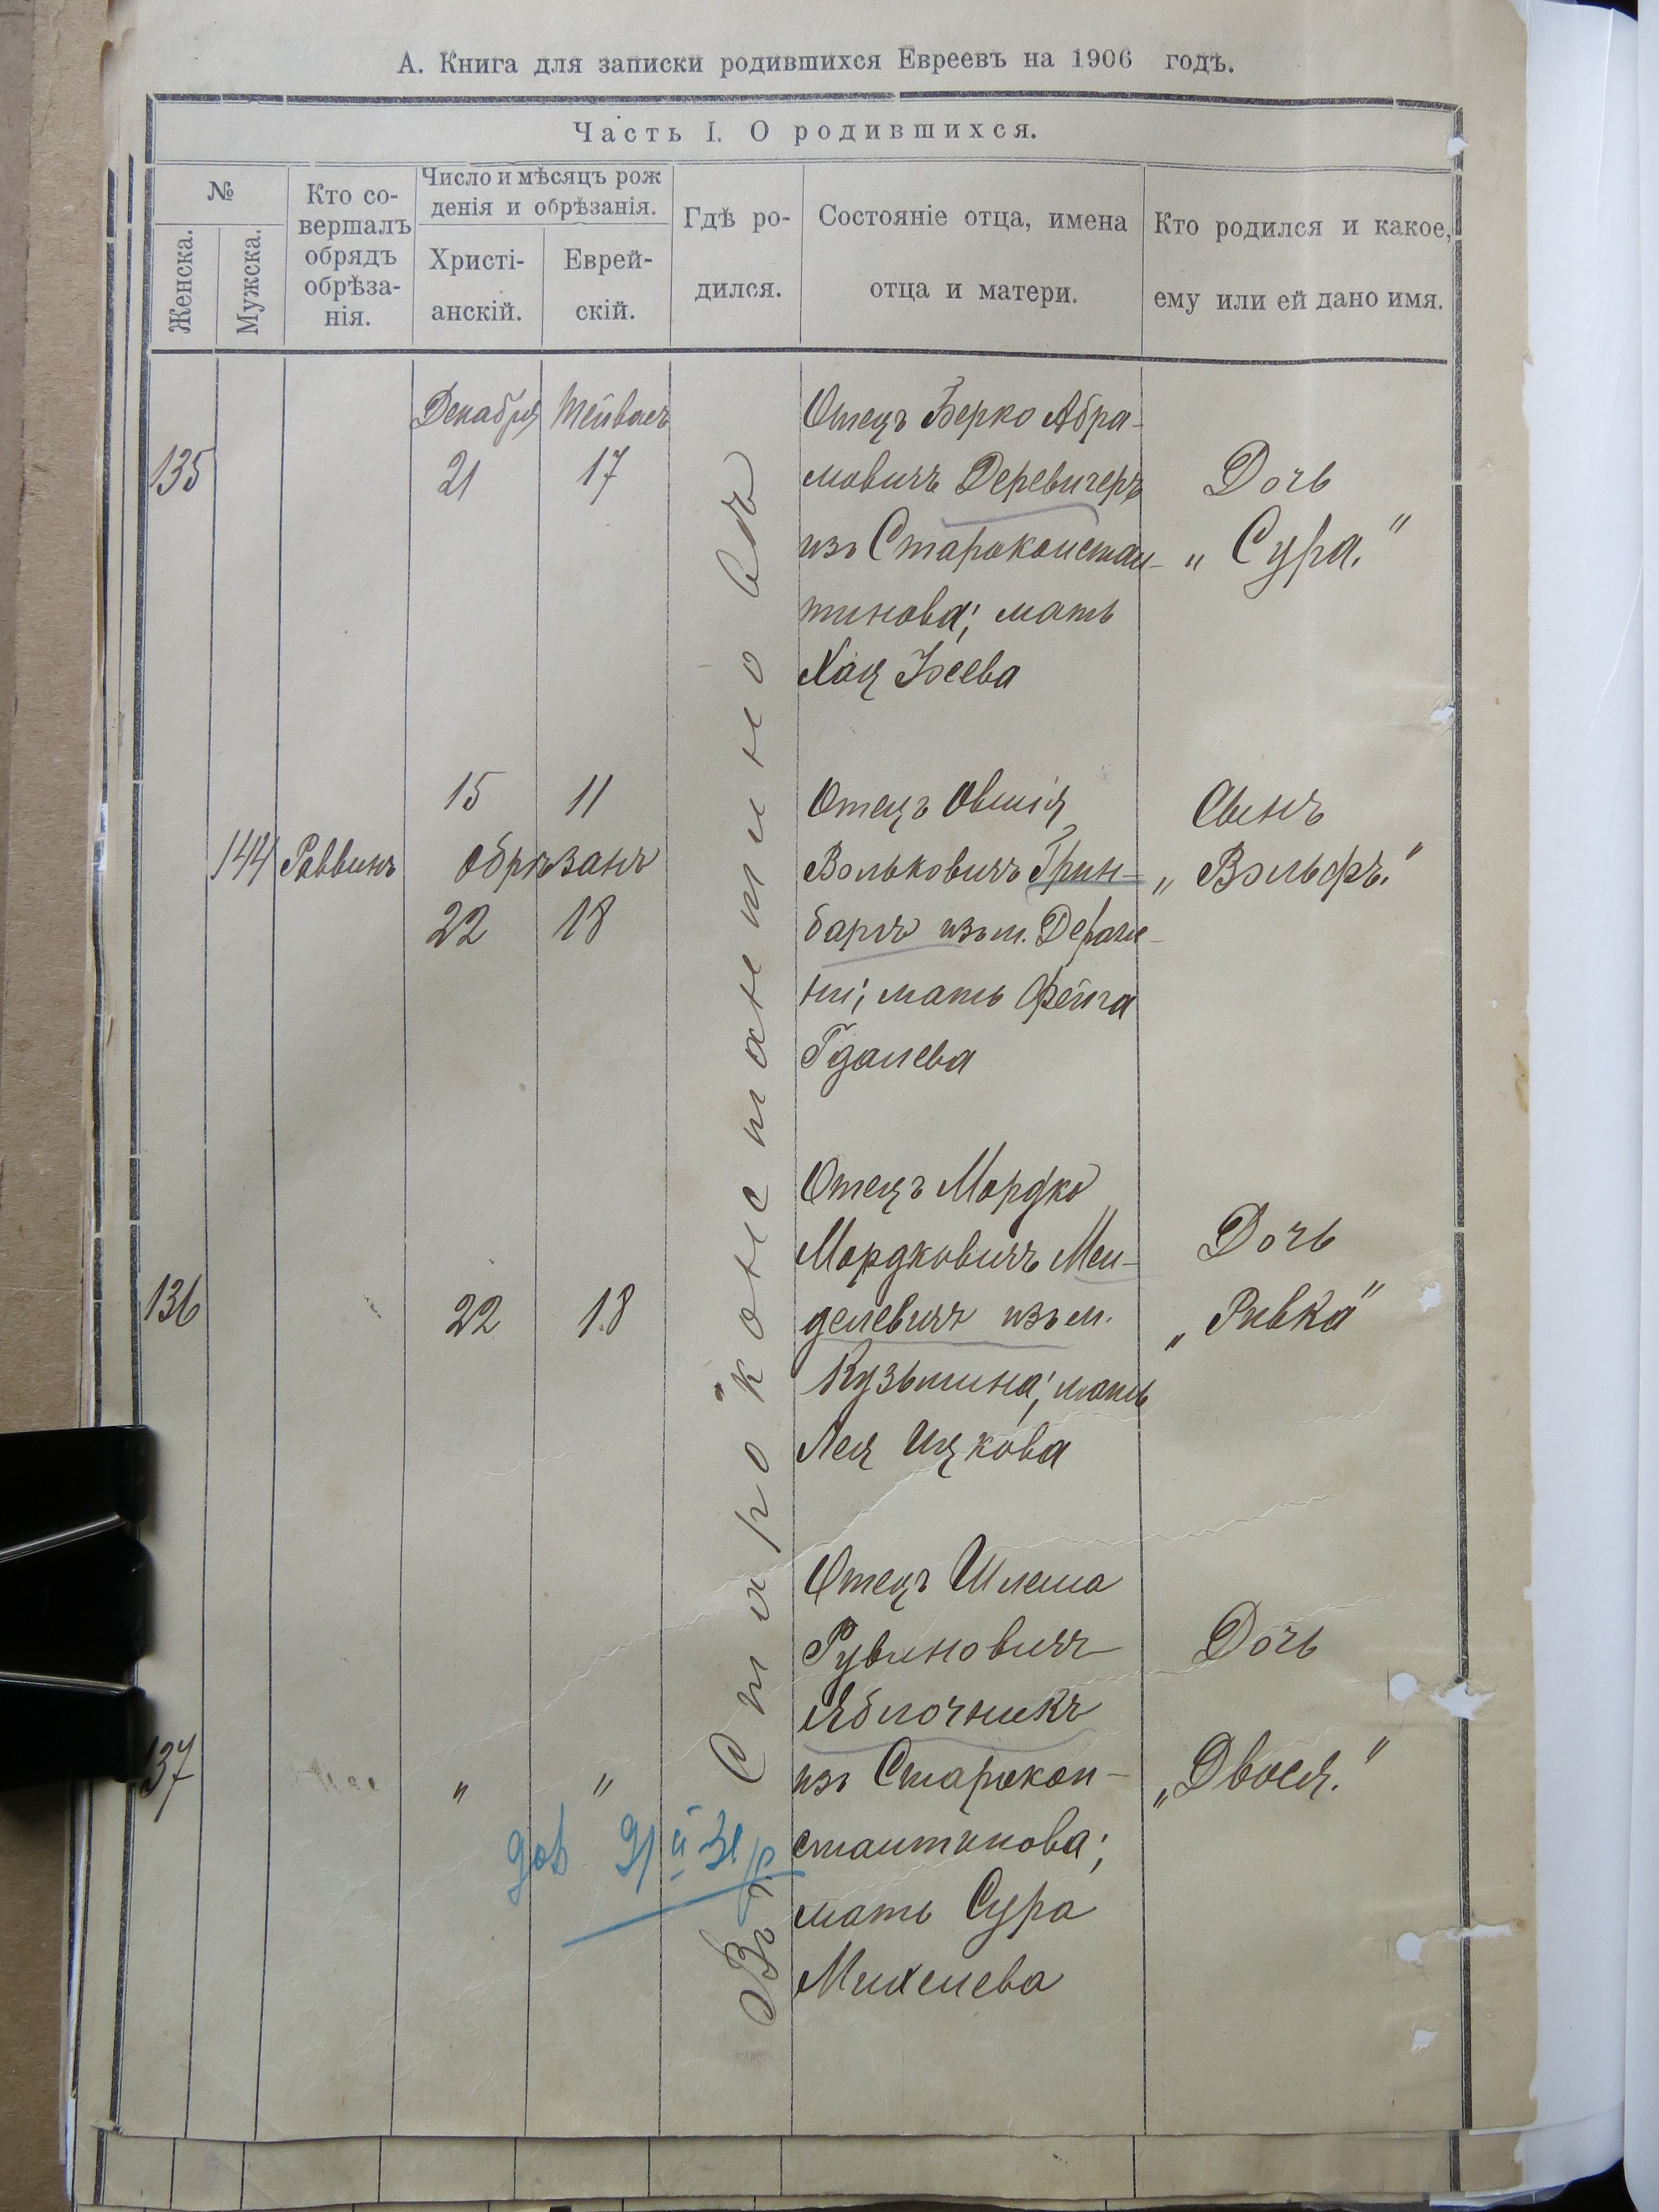 А. Книга для записки родившихся Евреевъ на 1906 годъ.
Часть I. О родившихся.
№
Женска.
Мужска.
Кто со-
вершалъ
обрядъ
обрѣза-
нія.
Число и мѣсяцъ рож
денія и обрѣзанія.
Христі-
анскій.
Еврей-
скій.
Гдѣ ро-
дился.
Состояніе отца, имена
отца и матери.
Кто родился и какое,
ему или ей дано имя.
Въ г. Староконстантиновѣ
135
Декабря Тейвысъ
21 17
Отецъ Берко Абра-
мовичъ Деревичеръ
изъ Староконстан-
тинова; мать
Хая Зеева
Дочь
„Сура."
144 Раввинъ
15 11
обрѣзанъ
22 18
Отецъ Овшія
Вольковичъ Грин-
бармъ изъ м. Деражн-
ни; мать Фейга
Гдалева
Сынъ
„Вольфъ."
136
22 18
Отецъ Мордко
Мордковичъ Мен-
делевичъ изъ м.
Кузьмина; мать
Лея Ицкова
Дочь
„Ривка"
137
" "
Отецъ Шлема
Рувиновичъ
Яблочникъ
изъ Старокон-
стантинова;
мать Сура
Михелева
Дочь
„Двося."